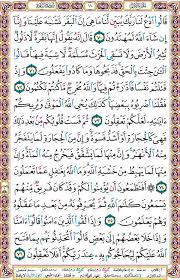 قَالُوا ادْعُ لَنَا رَبَّكَ يُبَيِّنْ لَنَا مَا هِيَ إِنَّ الْبَقَرَ تَشَابَهَ عَلَيْنَا وَإِنَّا
إِنْ شَاءَ اللَّهُ لَمُهْتَدُونَ ۝ قَالَ إِنَّهُ يَقُولُ إِنَّهَا بَقَرَةٌ لَا ذَلُولٌ
تُثِيرُ الْأَرْضَ وَلَا تَسْقِي الْحَرْثَ مُسَلَّمَةٌ لَا شِيَةَ فِيهَا قَالُوا
الْآنَ جِئْتَ بِالْحَقِّ فَذَبَحُوهَا وَمَا كَادُوا يَفْعَلُونَ ۝
وَإِذْ قَتَلْتُمْ نَفْسًا فَادَّارَأْتُمْ فِيهَا وَاللَّهُ مُخْرِجٌ مَا كُنْتُمْ تَكْتُمُونَ ۝
فَقُلْنَا اضْرِبُوهُ بِبَعْضِهَا كَذَلِكَ يُحْيِي اللَّهُ الْمَوْتَى وَيُرِيكُمْ
آيَاتِهِ لَعَلَّكُمْ تَعْقِلُونَ ۝ ثُمَّ قَسَتْ قُلُوبُكُمْ مِنْ بَعْدِ ذَلِكَ
فَهِيَ كَالْحِجَارَةِ أَوْ أَشَدُّ قَسْوَةً وَإِنَّ مِنَ الْحِجَارَةِ لَمَا يَتَفَجَّرُ
مِنْهُ الْأَنْهَارُ وَإِنَّ مِنْهَا لَمَا يَشَّقَّقُ فَيَخْرُجُ مِنْهُ الْمَاءُ وَإِنَّ
مِنْهَا لَمَا يَهْبِطُ مِنْ خَشْيَةِ اللَّهِ وَمَا اللَّهُ بِغَافِلٍ عَمَّا تَعْمَلُونَ
۝ أَفَتَطْمَعُونَ أَنْ يُؤْمِنُوا لَكُمْ وَقَدْ كَانَ فَرِيقٌ مِنْهُمْ
يَسْمَعُونَ كَلَامَ اللَّهِ ثُمَّ يُحَرِّفُونَهُ مِنْ بَعْدِ مَا عَقَلُوهُ
وَهُمْ يَعْلَمُونَ ۝ وَإِذَا لَقُوا الَّذِينَ آمَنُوا قَالُوا آمَنَّا
وَإِذَا خَلَا بَعْضُهُمْ إِلَى بَعْضٍ قَالُوا أَتُحَدِّثُونَهُمْ بِمَا فَتَحَ
اللَّهُ عَلَيْكُمْ لِيُحَاجُّوكُمْ بِهِ عِنْدَ رَبِّكُمْ أَفَلَا تَعْقِلُونَ